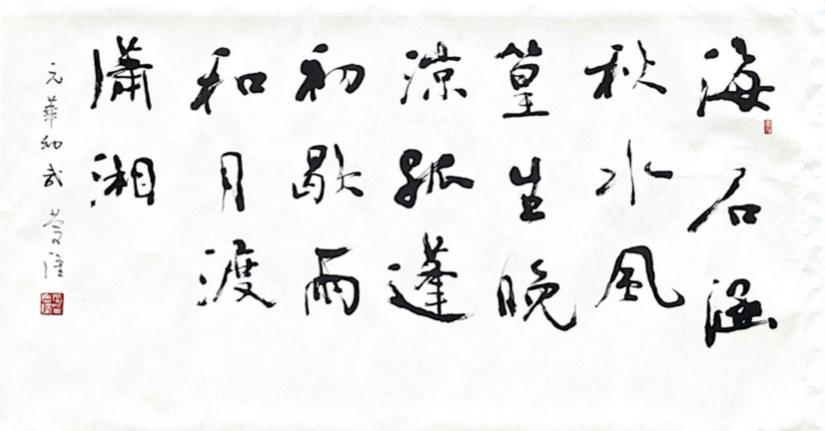 海石涵
秋水風
篁生晚
涼孤蓬
初歇雨
和月渡
瀟湘
元華幼武